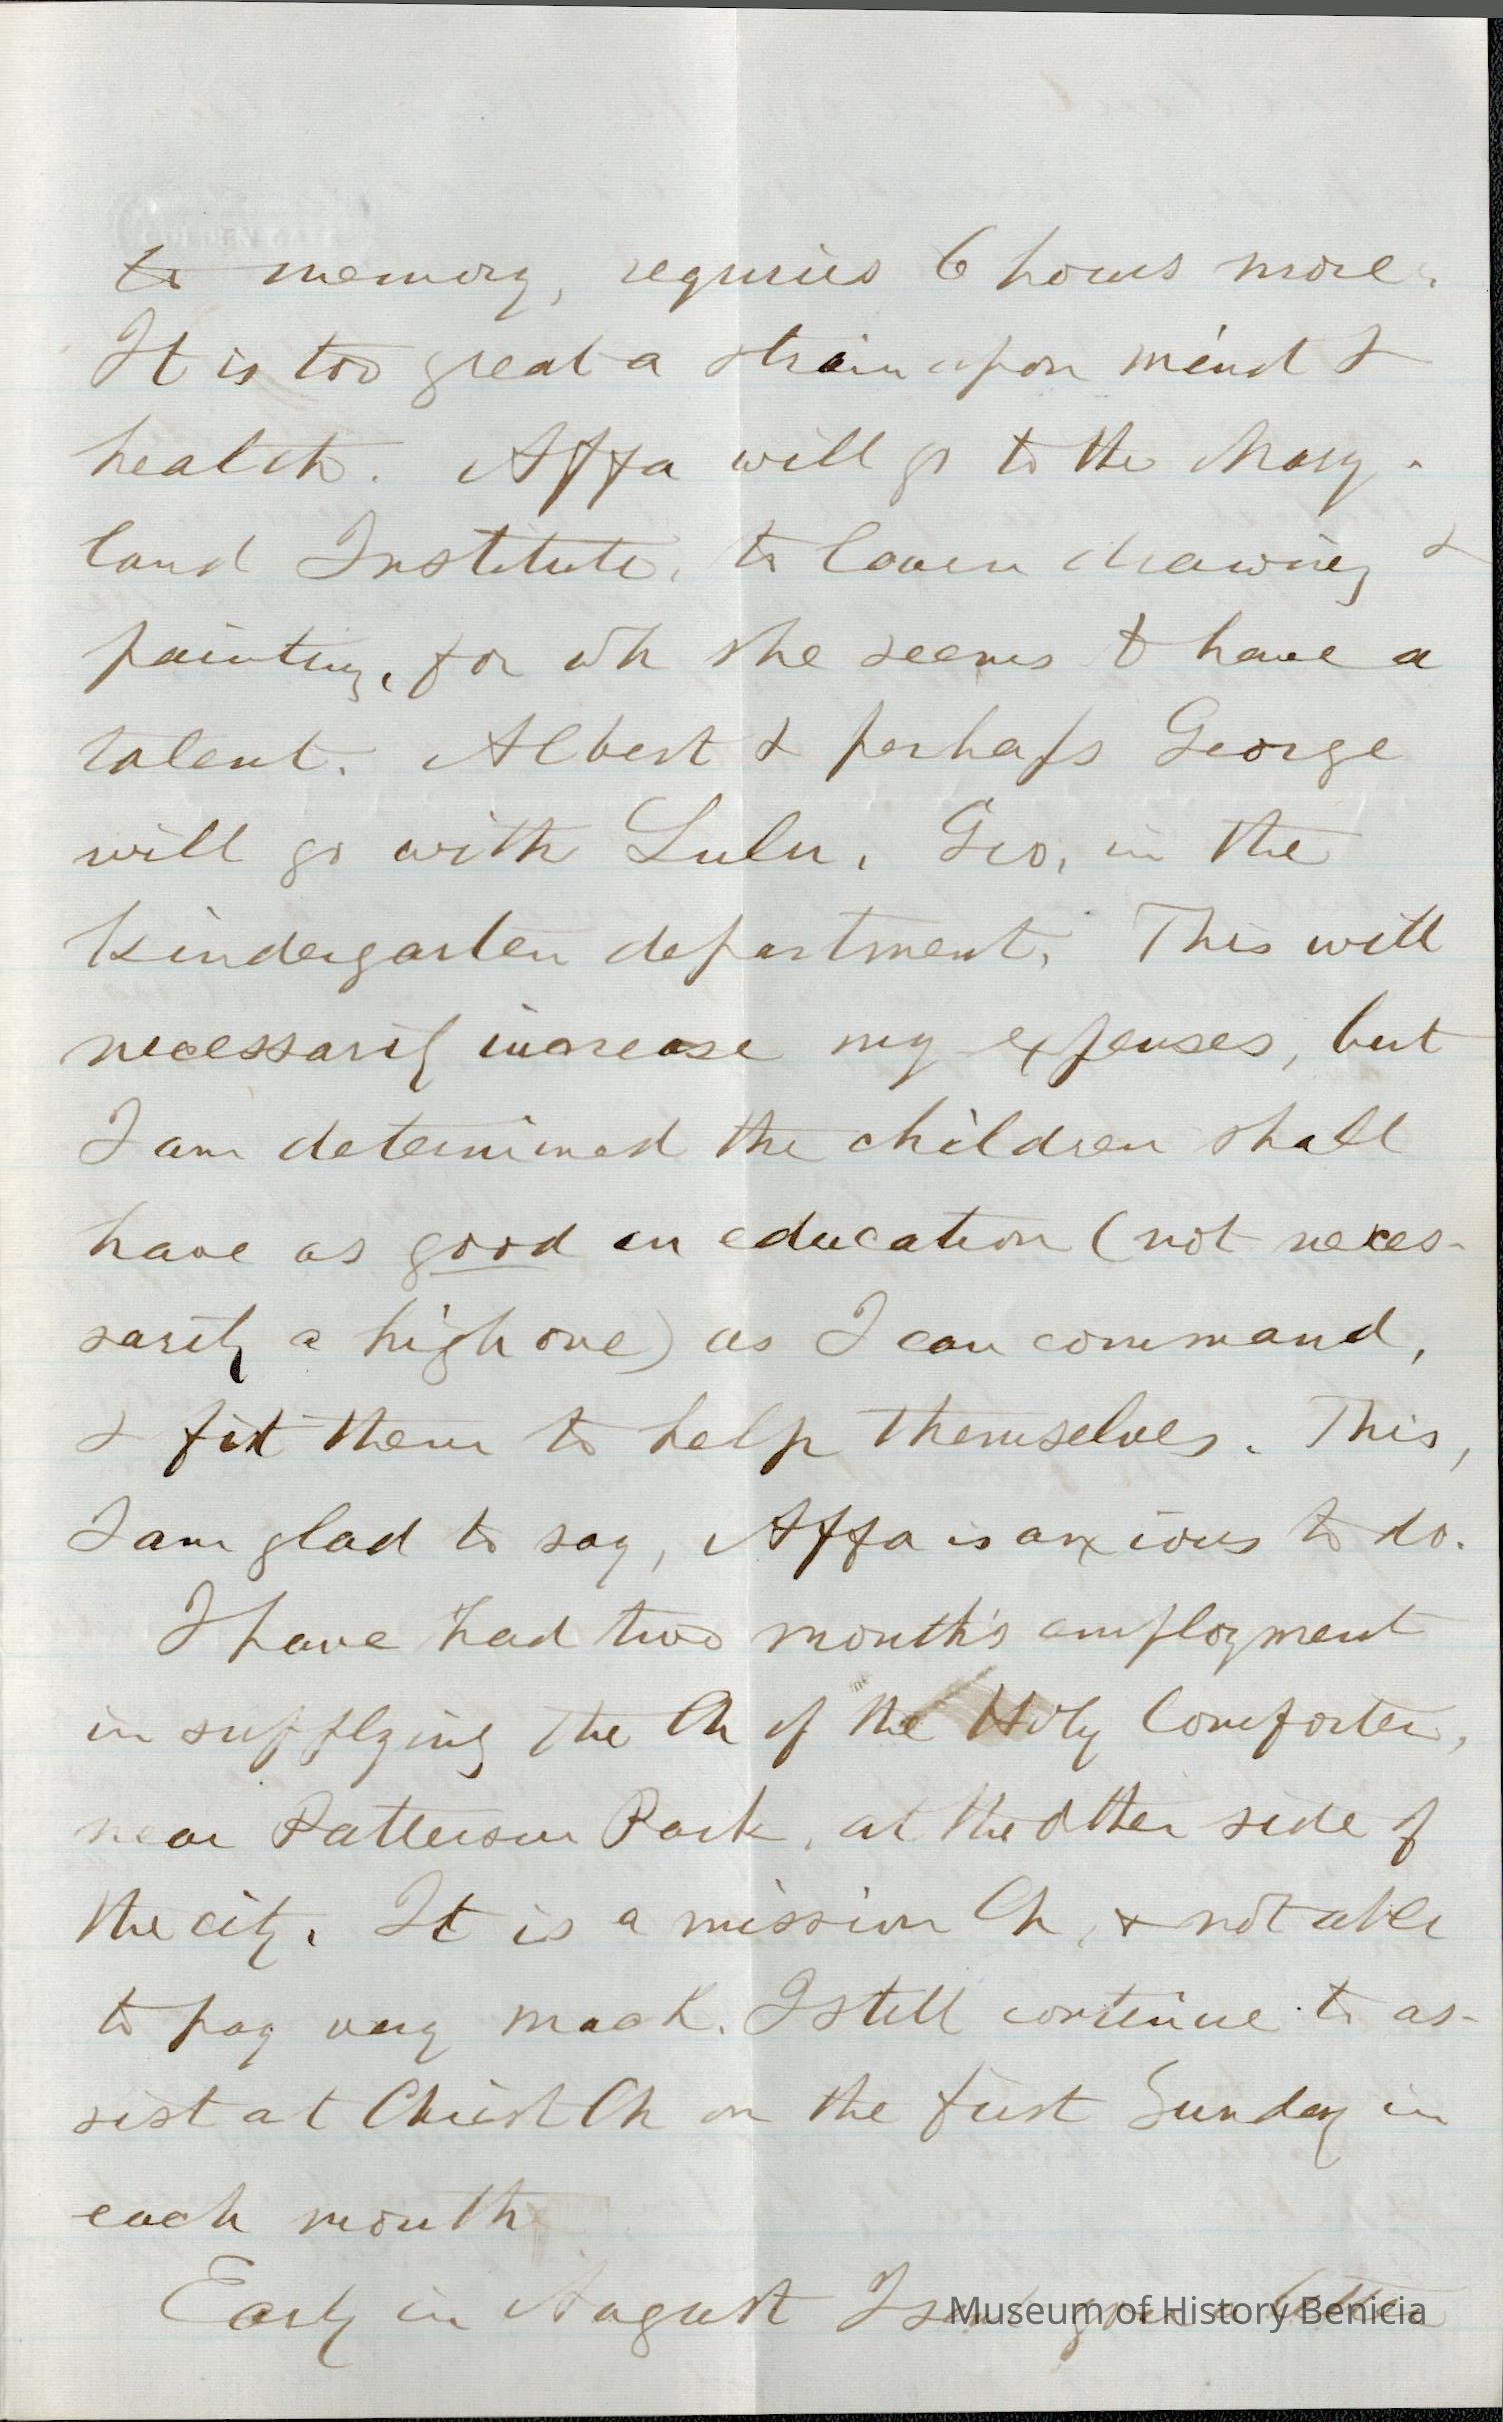 to memory, requires 6 hours more.
It is too great a strain upon mind &
health. Affa will go to the Mary-
land Institute, to learn drawing &
painting, for wh she seems to have a
talent. Albert & perhaps George
will go with Lulu, Geo, in the
Kindergarten department. This will
necessarily increase my expenses, but
I am determined the children shall
have as good an education (not neces-
sarily a high one) as I can command,
& fit them to help themselves. This,
I am glad to say, Affa is anxious to do.
I have had two month's employment
in supplying the Ch of the Holy Comforter,
near Patterson Park, at the other side of
the city. It is a mission Ch, & not able
to pay very much. I still continue to as-
sist at Christ Ch on the first Sunday in
each month
Early in August I sent you a letter
Museum of History Benicia